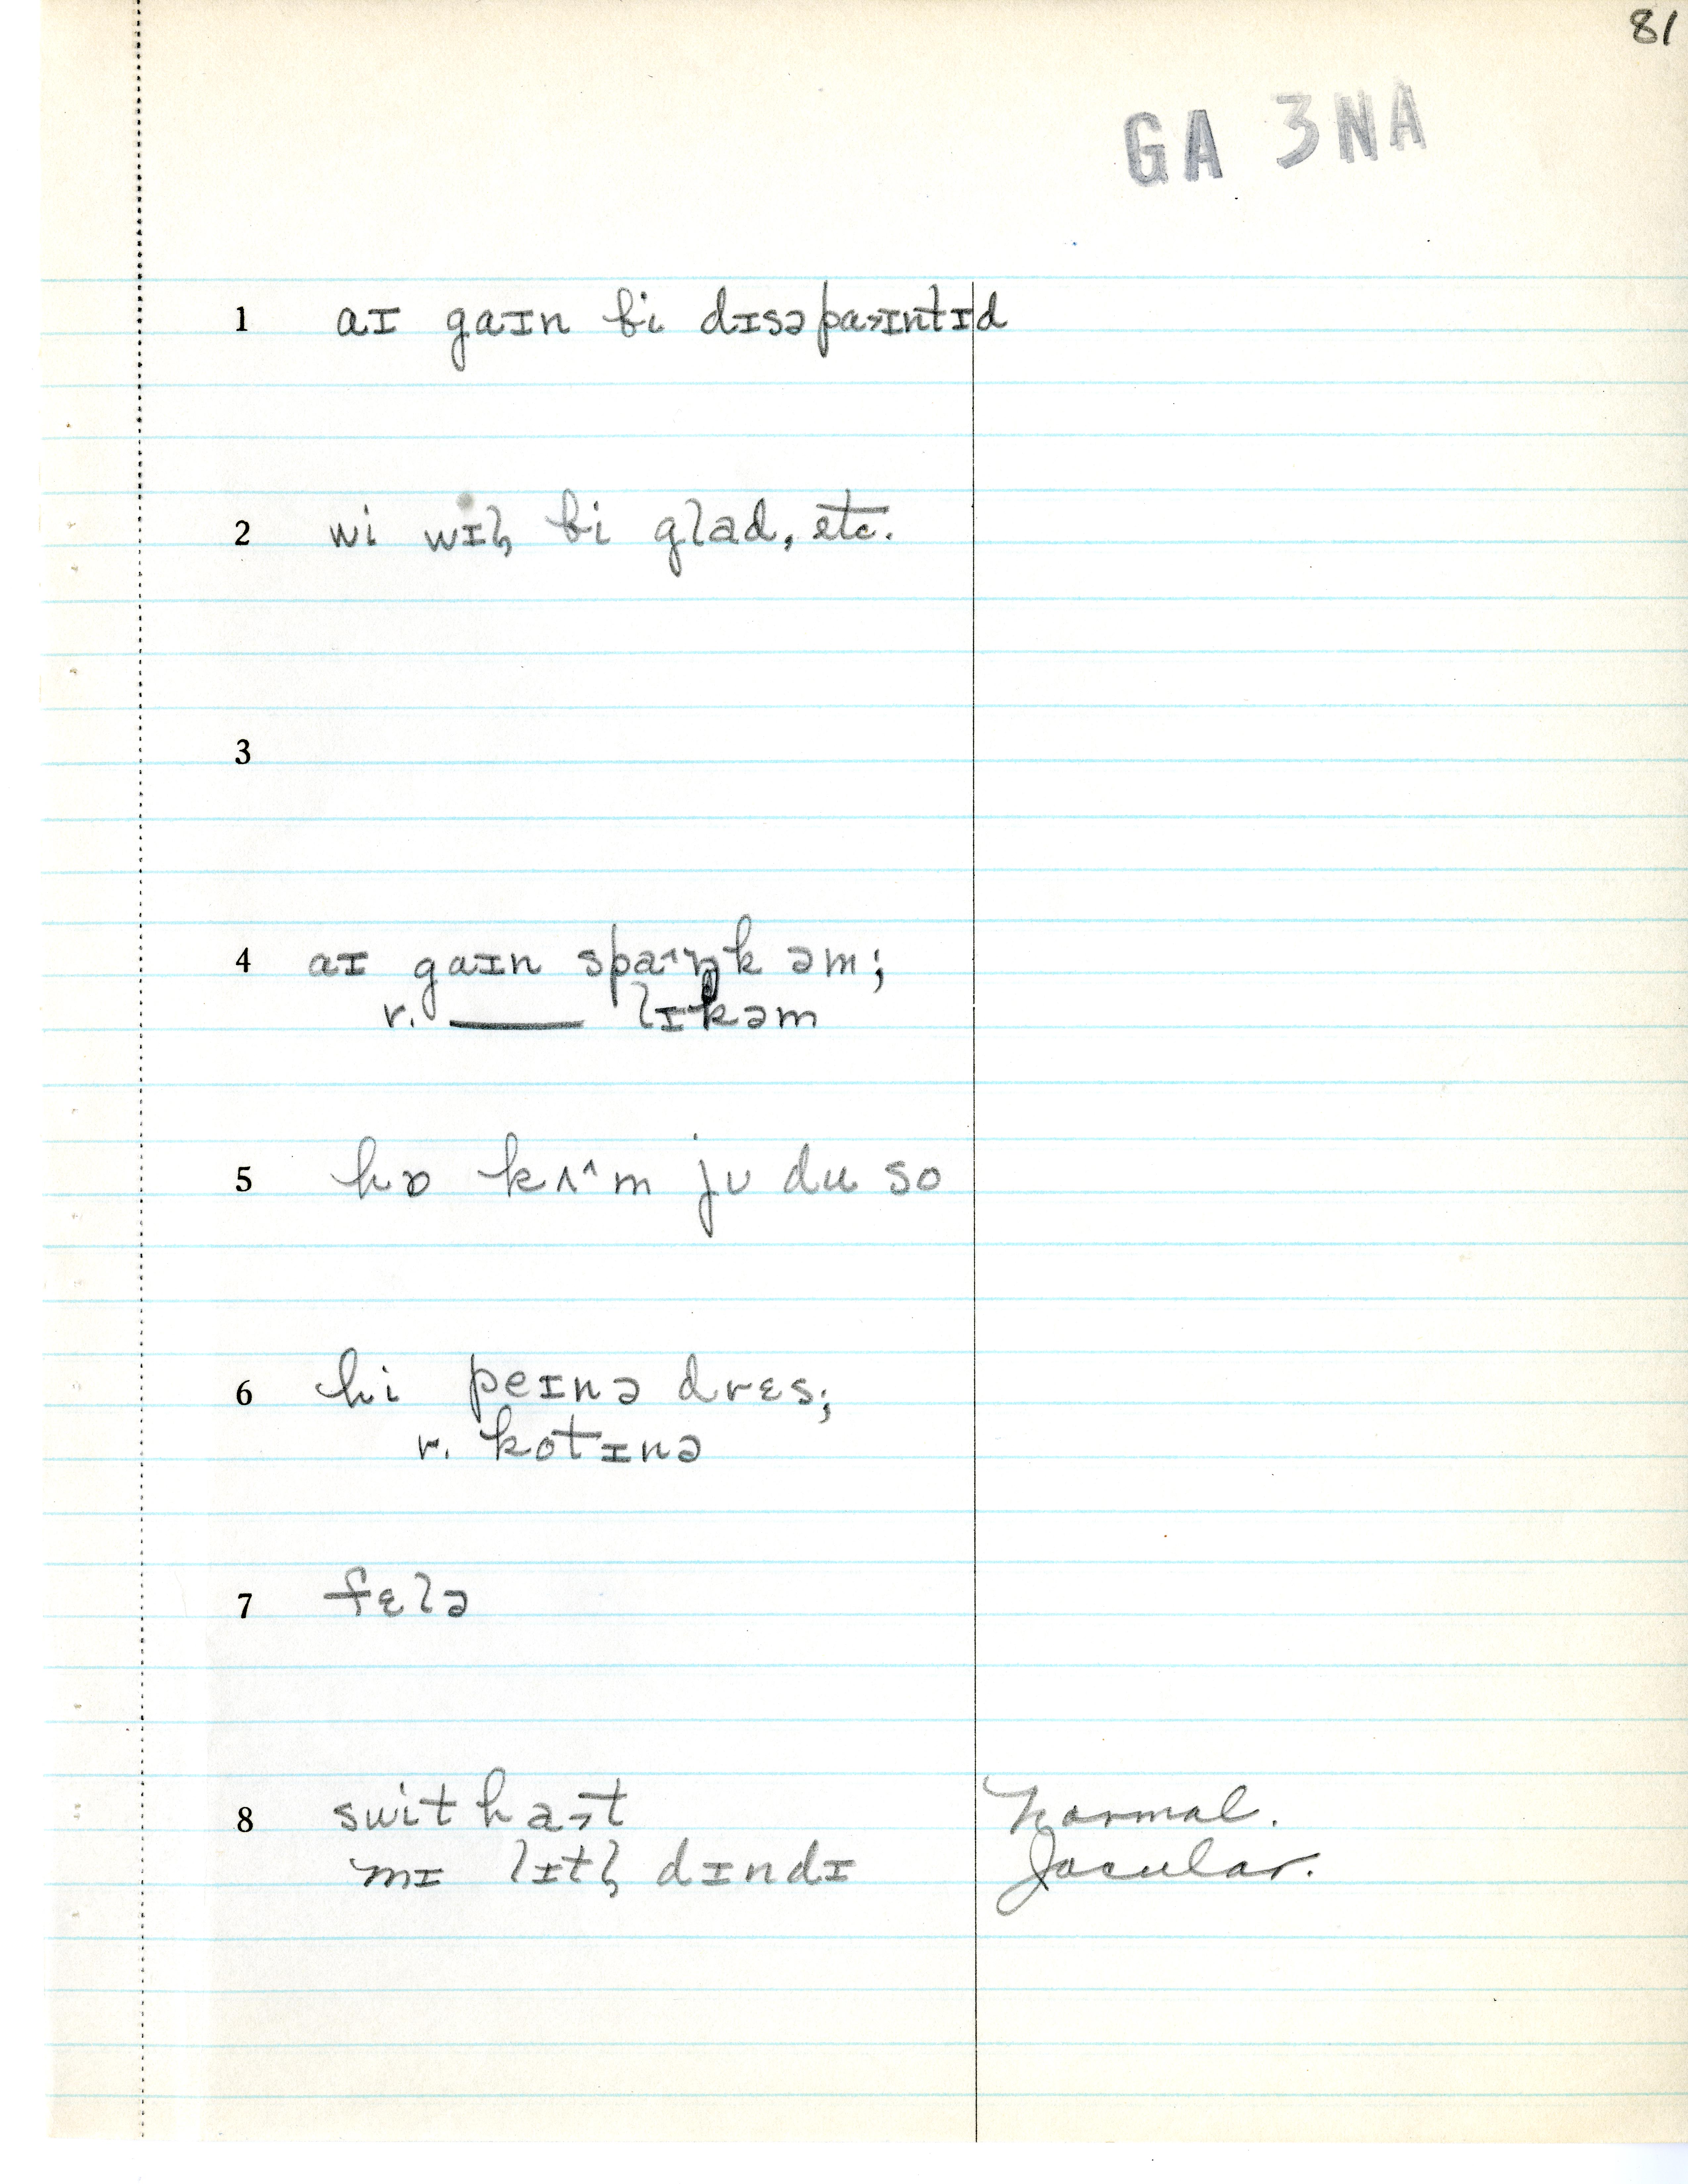 81
GA 3NA
1 aɪ gaɪn bi dɪsəpa˃ɪntɪd
2 wi wɪl̩ bi glad, etc.
3
4 aɪ gaɪn spa˄ŋk əm;
r. ____ lɪkəm
5 hɒ kʌ˄m jʊ du so
6 hi peɪnə drɛs;
r. kotɪnə
7 fɛlə
8 swit ha˃t Normal.
mɪ lɪtl̩ dɪndɪ Jocular.